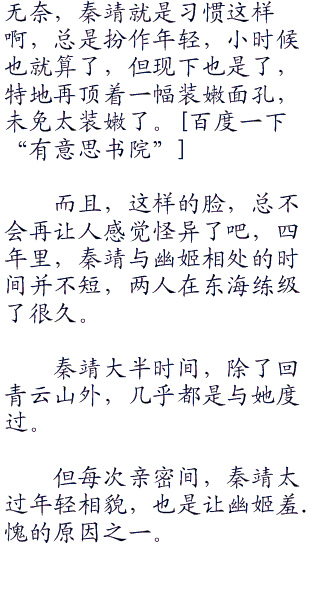 无奈，秦靖就是习惯这样
啊，总是扮作年轻，小时候
也就算了，但现下也是了，
特地再顶着一幅装嫩面孔，
未免太装嫩了。[百度一下
“有意思书院”]
而且，这样的脸，总不
会再让人感觉怪异了吧，四
年里，秦靖与幽姬相处的时
间并不短，两人在东海练级
了很久。
秦靖大半时间，除了回
青云山外，几乎都是与她度
过。
但每次亲密间，秦靖太
过年轻相貌，也是让幽姬羞.
愧的原因之一。